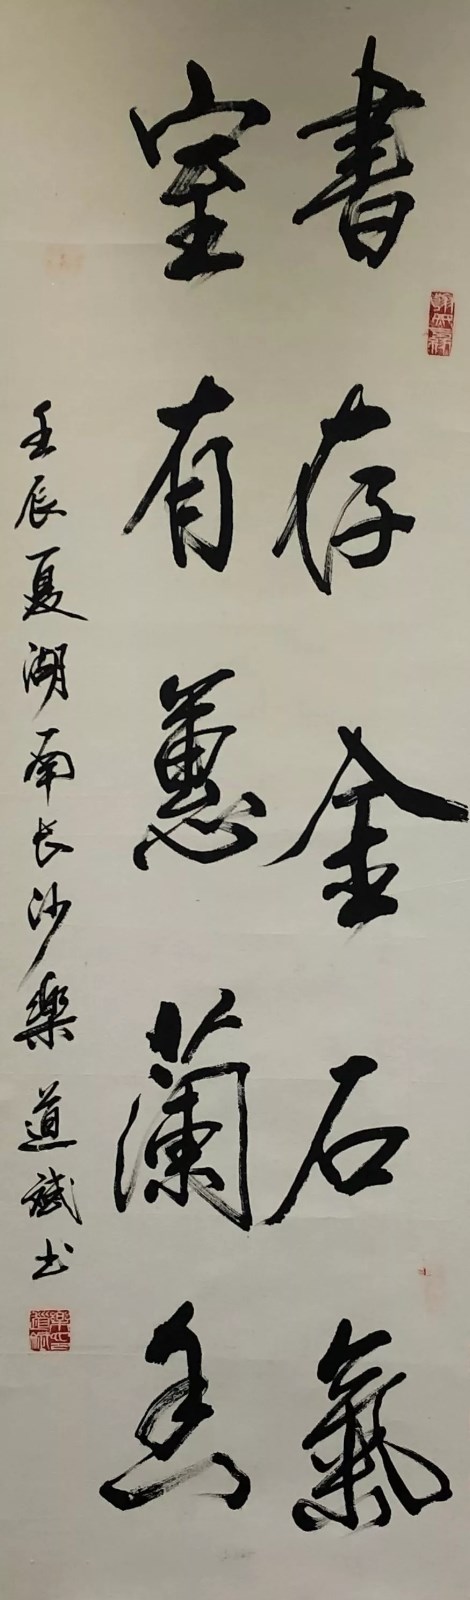 書存金石氣
室有蕙蘭香
壬辰夏湖南长沙樂道斌书